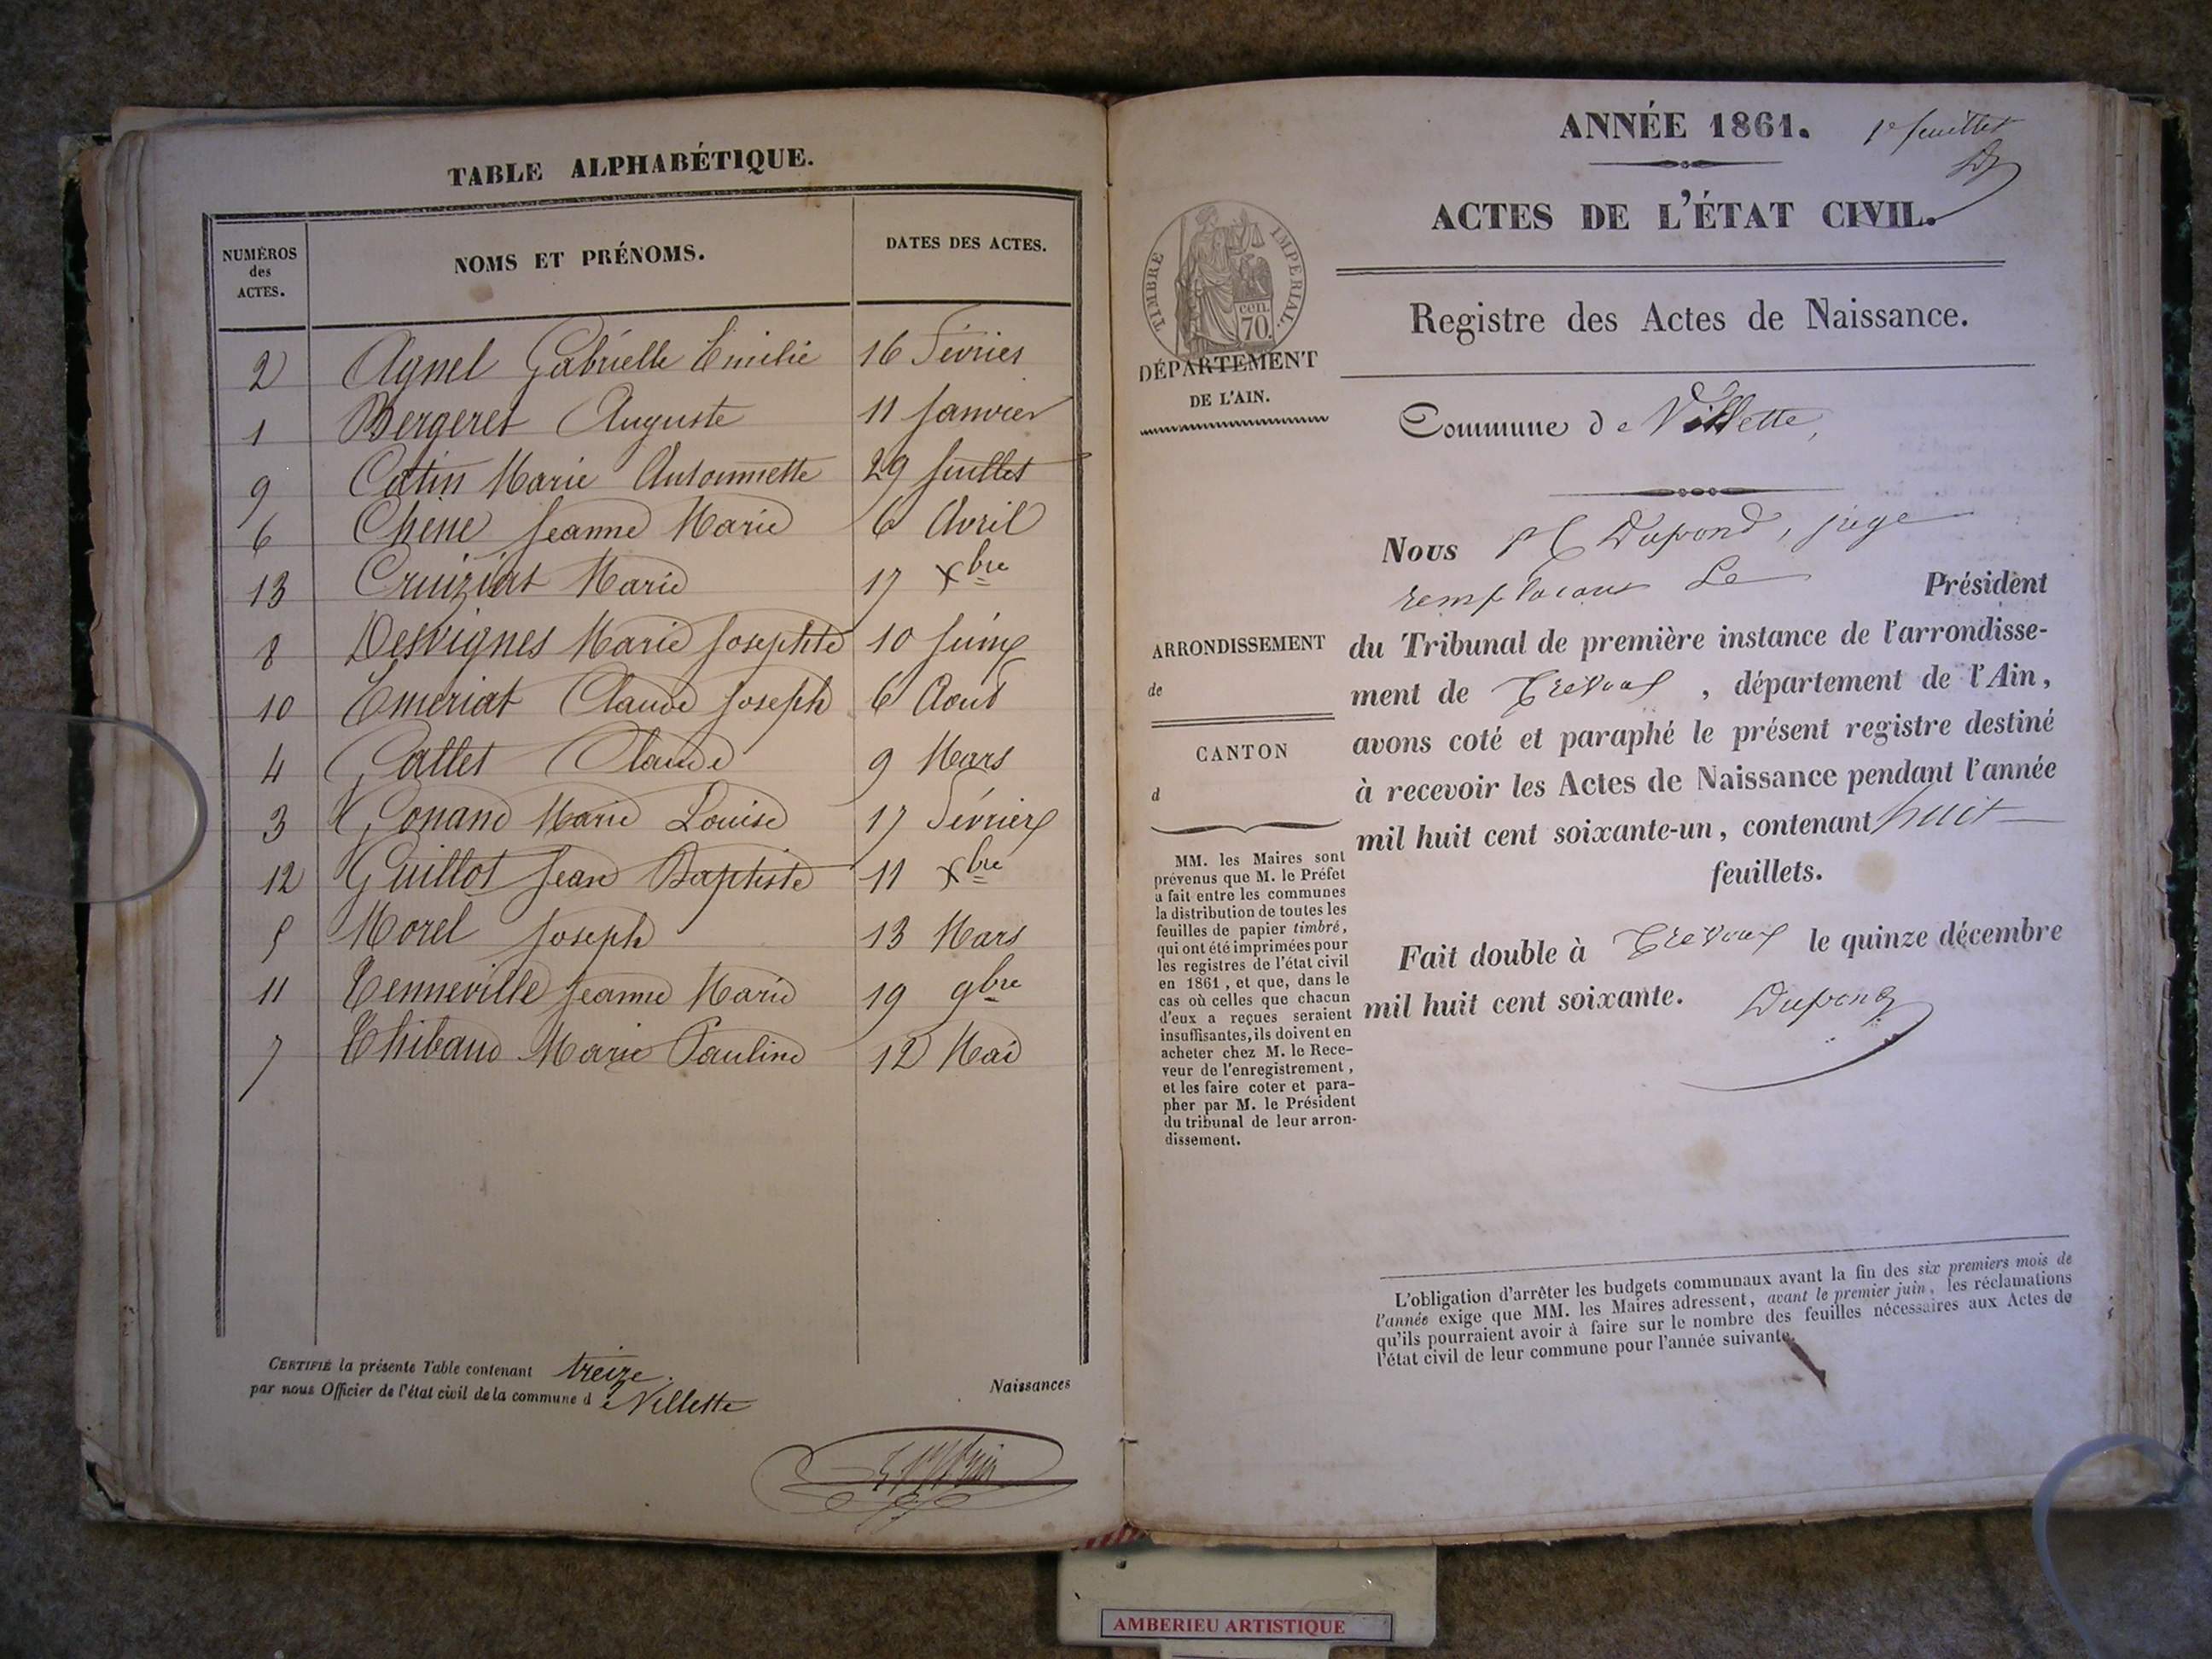 TABLE ALPHABÉTIQUE.
NUMÉROS des ACTES. NOMS ET PRÉNOMS. DATES DES ACTES.
2 Agnel Gabrielle Emilie 16 Févries
1 Bergeret Auguste 11 Janvier
9 Catin Marie Antoinnette 29 Juillet
6 Chêne Jeanne Marie 6 Avril
13 Cruiziat Marie 17 Xbre
8 Desvignes Marie Josephte 10 Juin
10 Emeriat Claude Joseph 6 Aout
4 Gallet Claude 9 Mars
3 Gonand Marie Louise 17 Février
12 Guillot Jean Baptiste 11 Xbre
5 Morel Joseph 13 Mars
11 Tenneville Jeanne Marie 19 9bre
7 Thibaud Marie Pauline 12 Mai
CERTIFIÉ la présente Table contenant treize. Naissances
par nous Officier de l'état civil de la commune d e Villette
ANNÉE 1861. 1e feuillet
ACTES DE L'ÉTAT CIVIL.
TIMBRE IMPERIAL.
cen.
70.
DÉPARTEMENT
DE L'AIN.
Registre des Actes de Naissance.
Commune de Villette,
ARRONDISSEMENT
de
CANTON
d
MM. les Maires sont
prévenus que M. le Préfet
a fait entre les communes
la distribution de toutes les
feuilles de papier timbré,
qui ont été imprimées pour
les registres de l'état civil
en 1861, et que, dans le
cas où celles que chacun
d'eux a reçues seraient
insuffisantes, ils doivent en
acheter chez M. le Rece-
veur de l'enregistrement,
et les faire coter et para-
pher par M. le Président
du tribunal de leur arron-
dissement.
Nous Dupond, juge
remplaçant Le Président
du Tribunal de première instance de l'arrondisse-
ment de Trévoux, département de l'Ain,
avons coté et paraphé le présent registre destiné
à recevoir les Actes de Naissance pendant l'année
mil huit cent soixante-un, contenant huit
feuillets.
Fait double à Trévoux le quinze décembre
mil huit cent soixante. Dupond
L'obligation d'arrêter les budgets communaux avant la fin des six premiers mois de
l'année exige que MM. les Maires adressent, avant le premier juin, les réclamations
qu'ils pourraient avoir à faire sur le nombre des feuilles nécessaires aux Actes de
l'état civil de leur commune pour l'année suivante.
AMBERIEU ARTISTIQUE